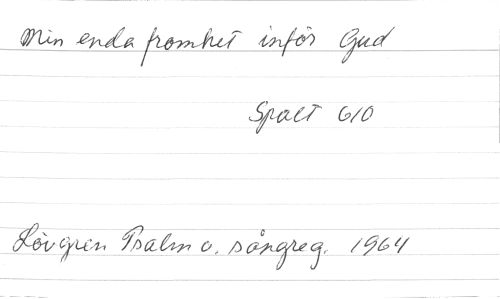 Min enda fromhet inför Gud
Spalt 610
Lövgren Psalm o. sångreg. 1964